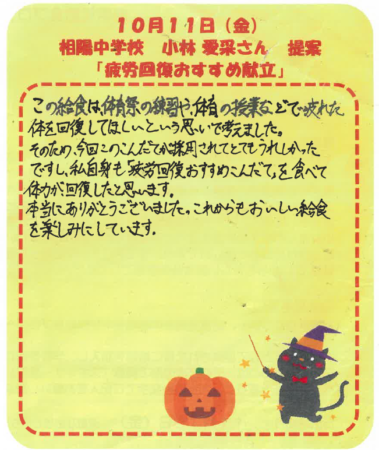 10月11日（金）
相陽中学校　小林 愛采さん　提案
「疲労回復おすすめ献立」
この給食は、体育祭の練習や、体育の授業などで疲れた
体を回復してほしいという思いで考えました。
そのため、今回このこんだてが採用されてとてもうれしかった
ですし、私自身も「疲労回復おすすめこんだて」を食べて
体力が回復したと思います。
本当にありがとうございました。これからもおいしい給食
を楽しみにしています。